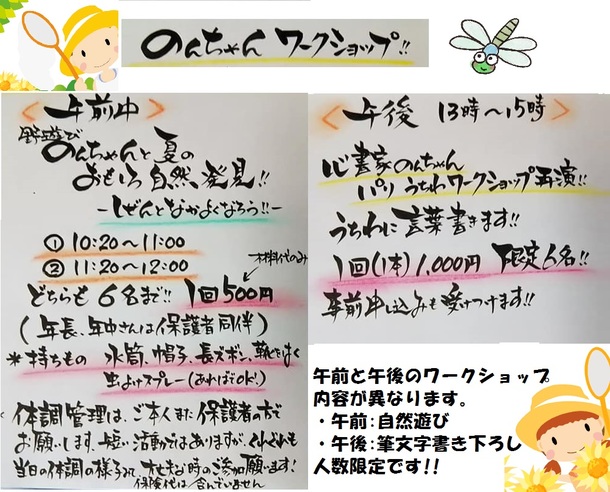 のんちゃん ワークショップ!!
<午前中>
野遊び
のんちゃんと夏の
おもしろ自然、発見!!
-しぜんとなかよくなろう!!-
① 10:20~11:00
② 11:20~12:00
材料代のみ
どちらも6名まで!! 1回500円
(年長、年中さんは保護者同伴)
*持ちもの 水筒、帽子、長ズボン、靴をはく
虫よけスプレー(あればでOK!)
体調管理は、ご本人また保護者の方で
お願いします。短い活動ではありますが、くれぐれも
当日の体調の様子みて、大丈夫な時のご参加願います!
保険代は含んでいません
<午後 13時~15時>
心書家のんちゃん
パリ うちわワークショップ再演!!
うちわに言葉書きます!!
1回(1本)1,000円 限定6名!!
事前申し込みも受けつけます!!
午前と午後のワークショップ
内容が異なります。
・午前:自然遊び
・午後:筆文字書き下ろし
人数限定です!!